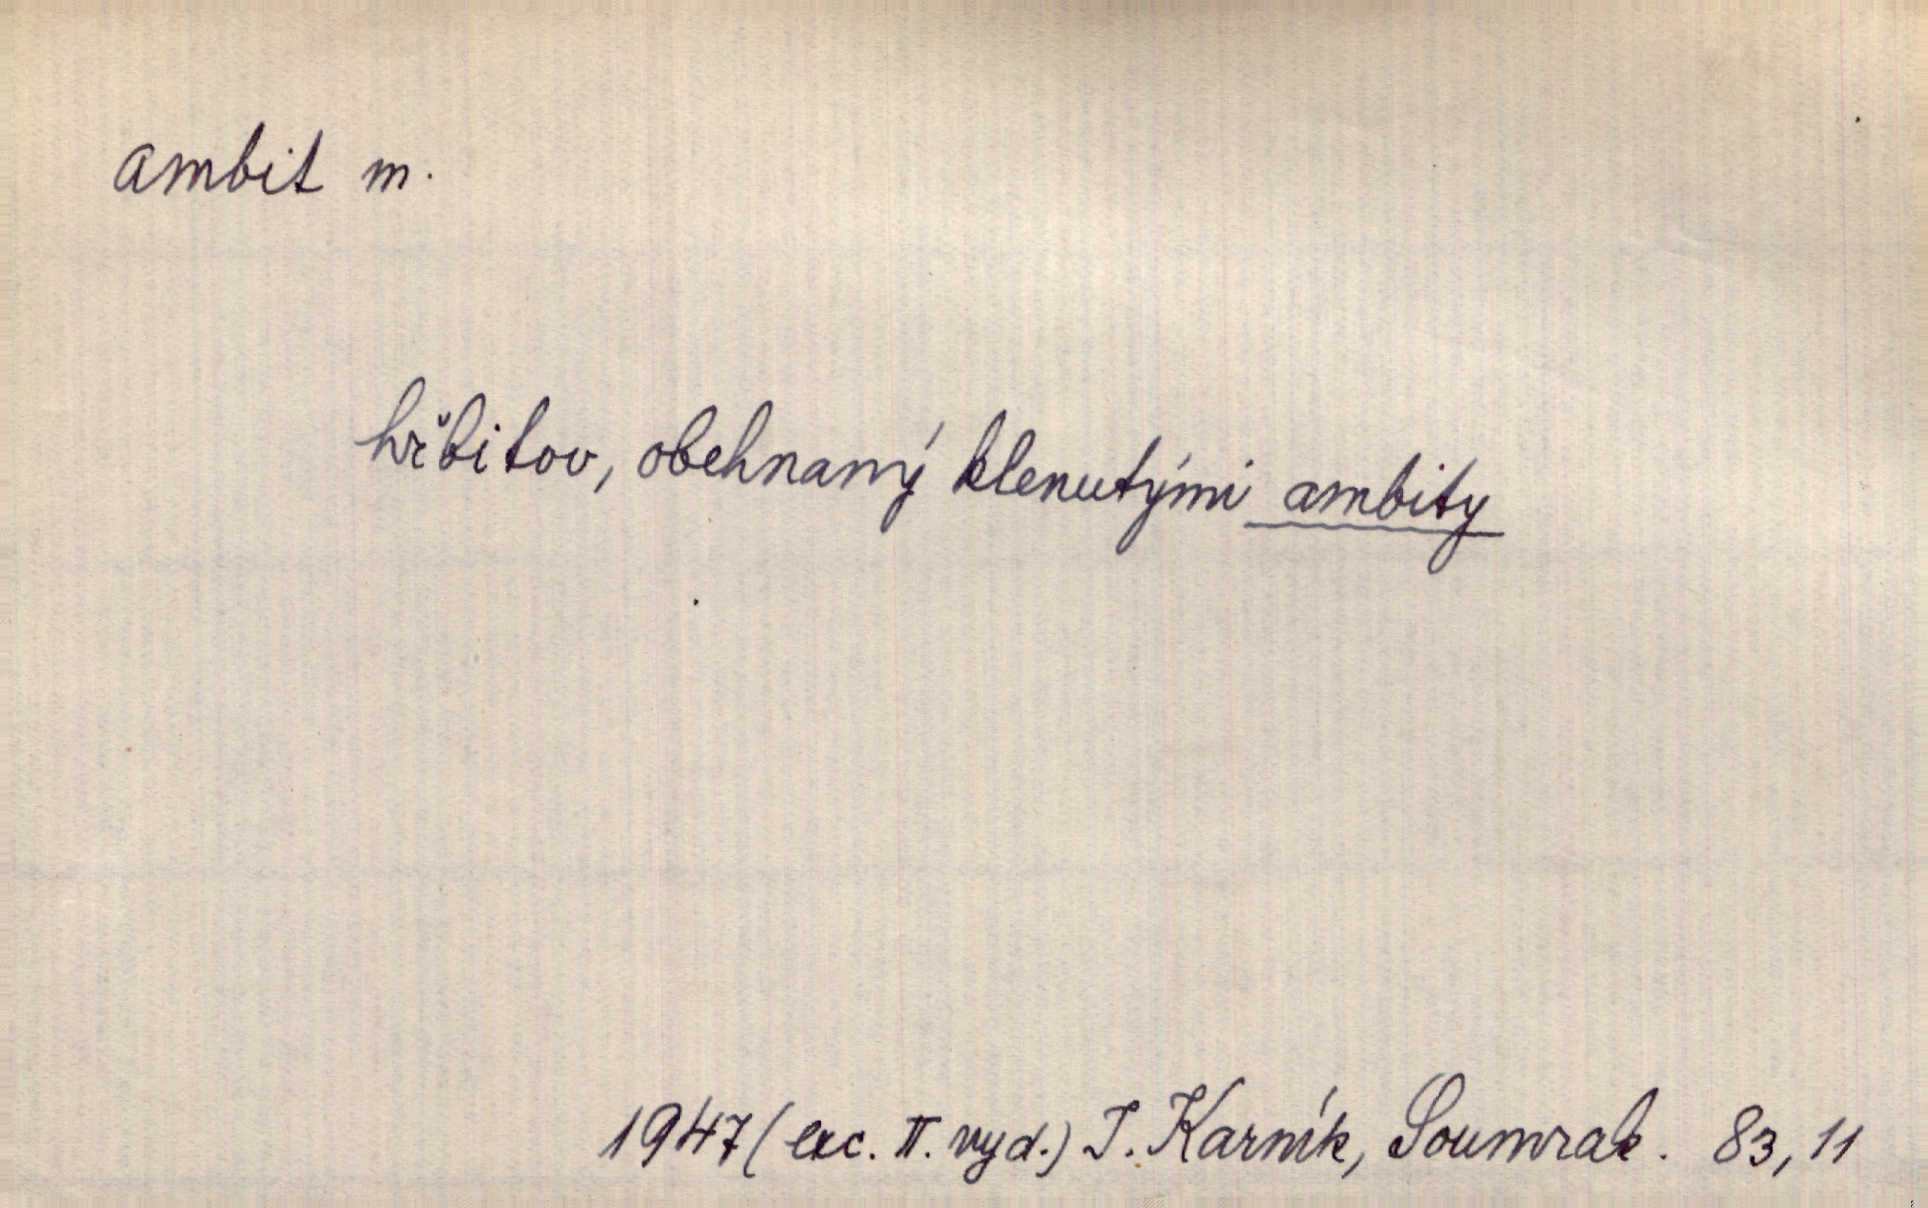 ambit m.
hřbitov, obehnaný klenutými ambity
1947 (exc. II. vyd.) J. Karník, Soumrak. 83, 11